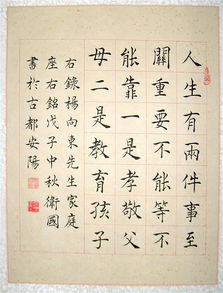 人生有兩件事至
關重要不能等不
能靠一是孝敬父
母二是教育孩子
右錄楊向東先生家庭
座右銘戊子中秋衛國
書於古都安陽